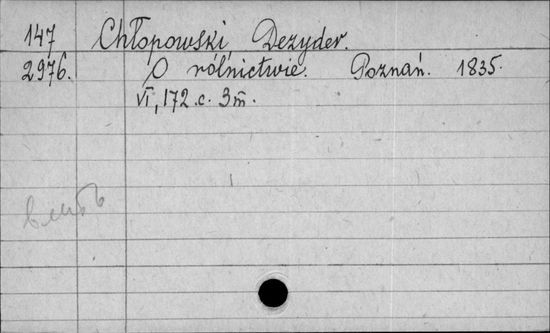 147 Chłopowski, Dezyder.
2976. O rólnictwie. Poznań. 1835.
VI, 172 c. 3 m.